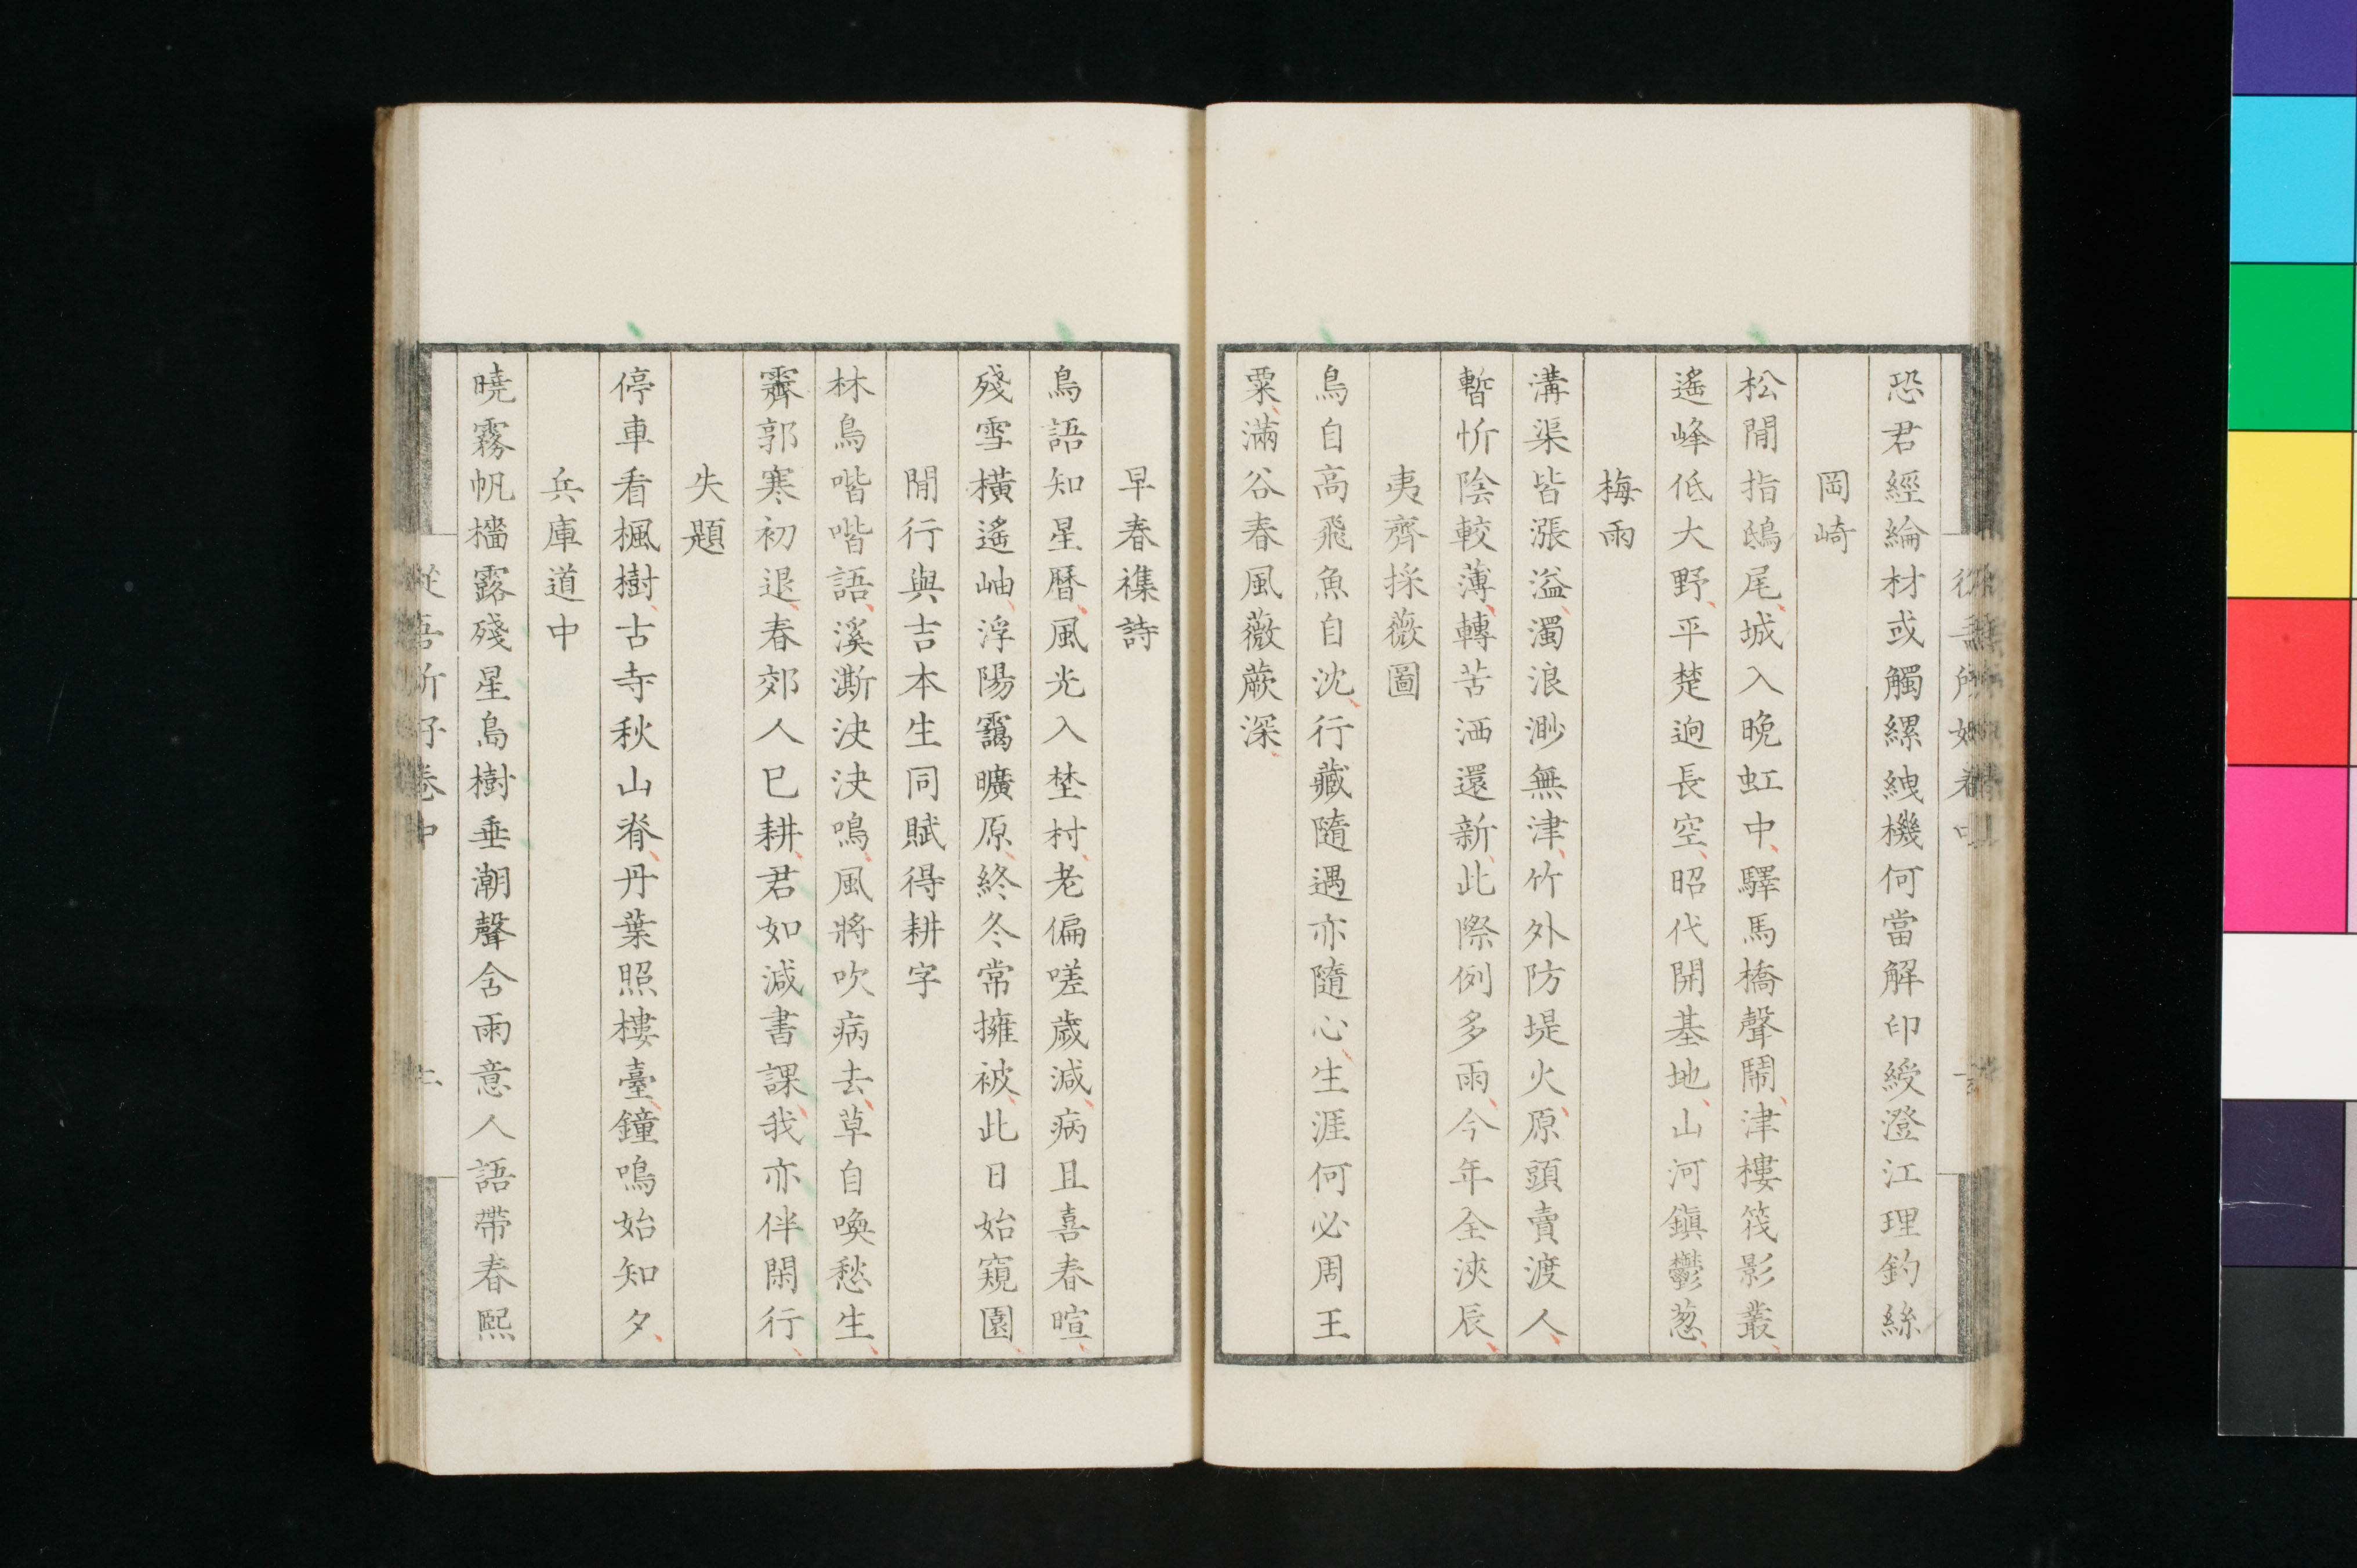 恐君經綸材或觸縲絏機何當解印綬澄江理釣絲
岡崎
松間指鴟尾城入晚虹中驛馬橋聲鬧津樓筏影叢
遙峰低大野平楚迥長空昭代開基地山河鎭鬱葱
梅雨
溝渠皆漲溢濁浪渺無津竹外防堤火原頭賣渡人
暫忻陰較薄轉苦洒還新此際例多雨今年全浹辰
夷齊採薇圖
鳥自高飛魚自沈行藏隨遇亦隨心生涯何必周王
粟滿谷春風薇蕨深
早春襍詩
鳥語知星曆風光入埜村老偏嗟歲減病且喜春暄
殘雪橫遙岫浮陽靄曠原終冬常擁被此日始窺園
閒行與吉本生同賦得耕字
林鳥喈喈語溪澌決決鳴風將吹病去草自喚愁生
霽郭寒初退春郊人已耕君如減書課我亦伴閑行
失題
停車看楓樹古寺秋山脊丹葉照樓臺鐘鳴始知夕
兵庫道中
曉霧帆檣露殘星島樹垂潮聲含雨意人語帶春熙
從吾所好卷中